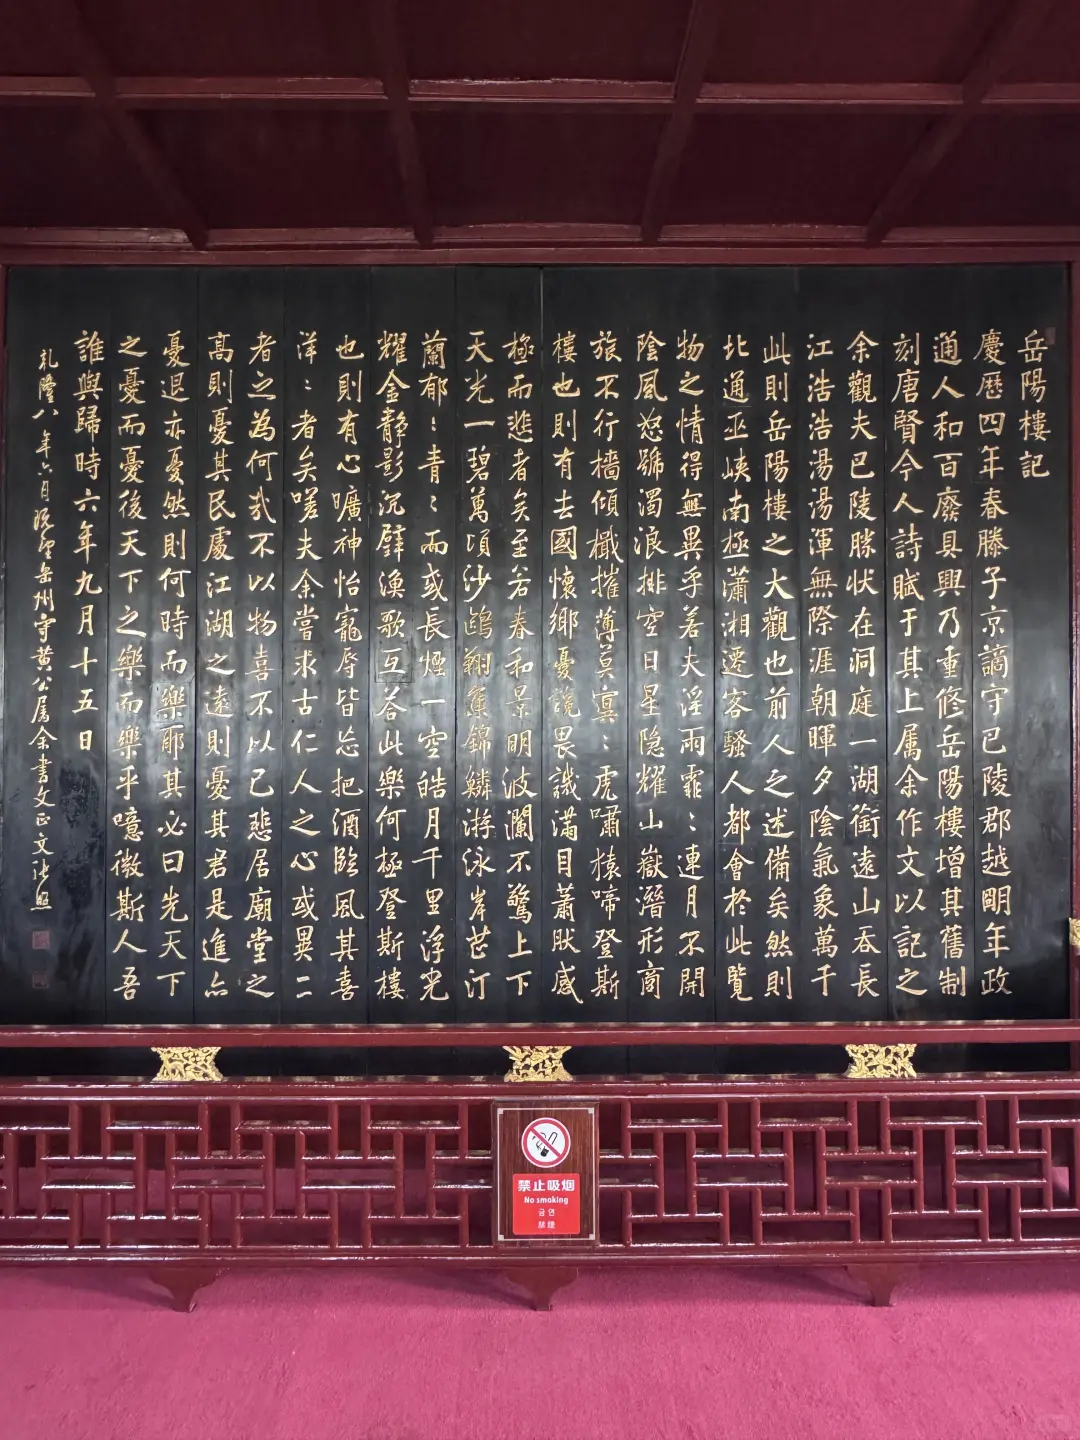 岳陽樓記
慶歷四年春滕子京謫守巴陵郡越明年政
通人和百廢具興乃重修岳陽樓增其舊制
刻唐賢今人詩賦于其上属余作文以記之
余觀夫巴陵勝狀在洞庭一湖銜遠山吞長
江浩浩湯湯渾無際涯朝暉夕陰氣象萬千
此則岳陽樓之大觀也前人之述備矣然則
北通巫峽南極瀟湘遷客騷人都會於此覽
物之情得無異乎若夫淫雨霏〻連月不開
陰風怒號濁浪排空日星隐耀山嶽潛形商
旅不行檣傾檝摧薄莫冥〻虎嘯猿啼登斯
樓也則有去國懷鄉憂讒畏譏滿目蕭然感
極而悲者矣至若春和景明波瀾不驚上下
天光一碧萬頃沙鷗翔集錦鱗游泳岸芷汀
蘭郁〻青〻而或長煙一空皓月千里浮光
耀金靜影沉璧漁歌互答此樂何極登斯樓
也則有心曠神怡寵辱皆忘把酒臨風其喜
洋〻者矣嗟夫余嘗求古仁人之心或異二
者之為何哉不以物喜不以己悲居廟堂之
高則憂其民處江湖之遠則憂其君是進亦
憂退亦憂然則何時而樂耶其必曰先天下
之憂而憂後天下之樂而樂乎噫微斯人吾
誰與歸時六年九月十五日
乾隆八年六月既望岳州守黄公属余書文正文張照
禁止吸烟
No smoking
금연
禁煙